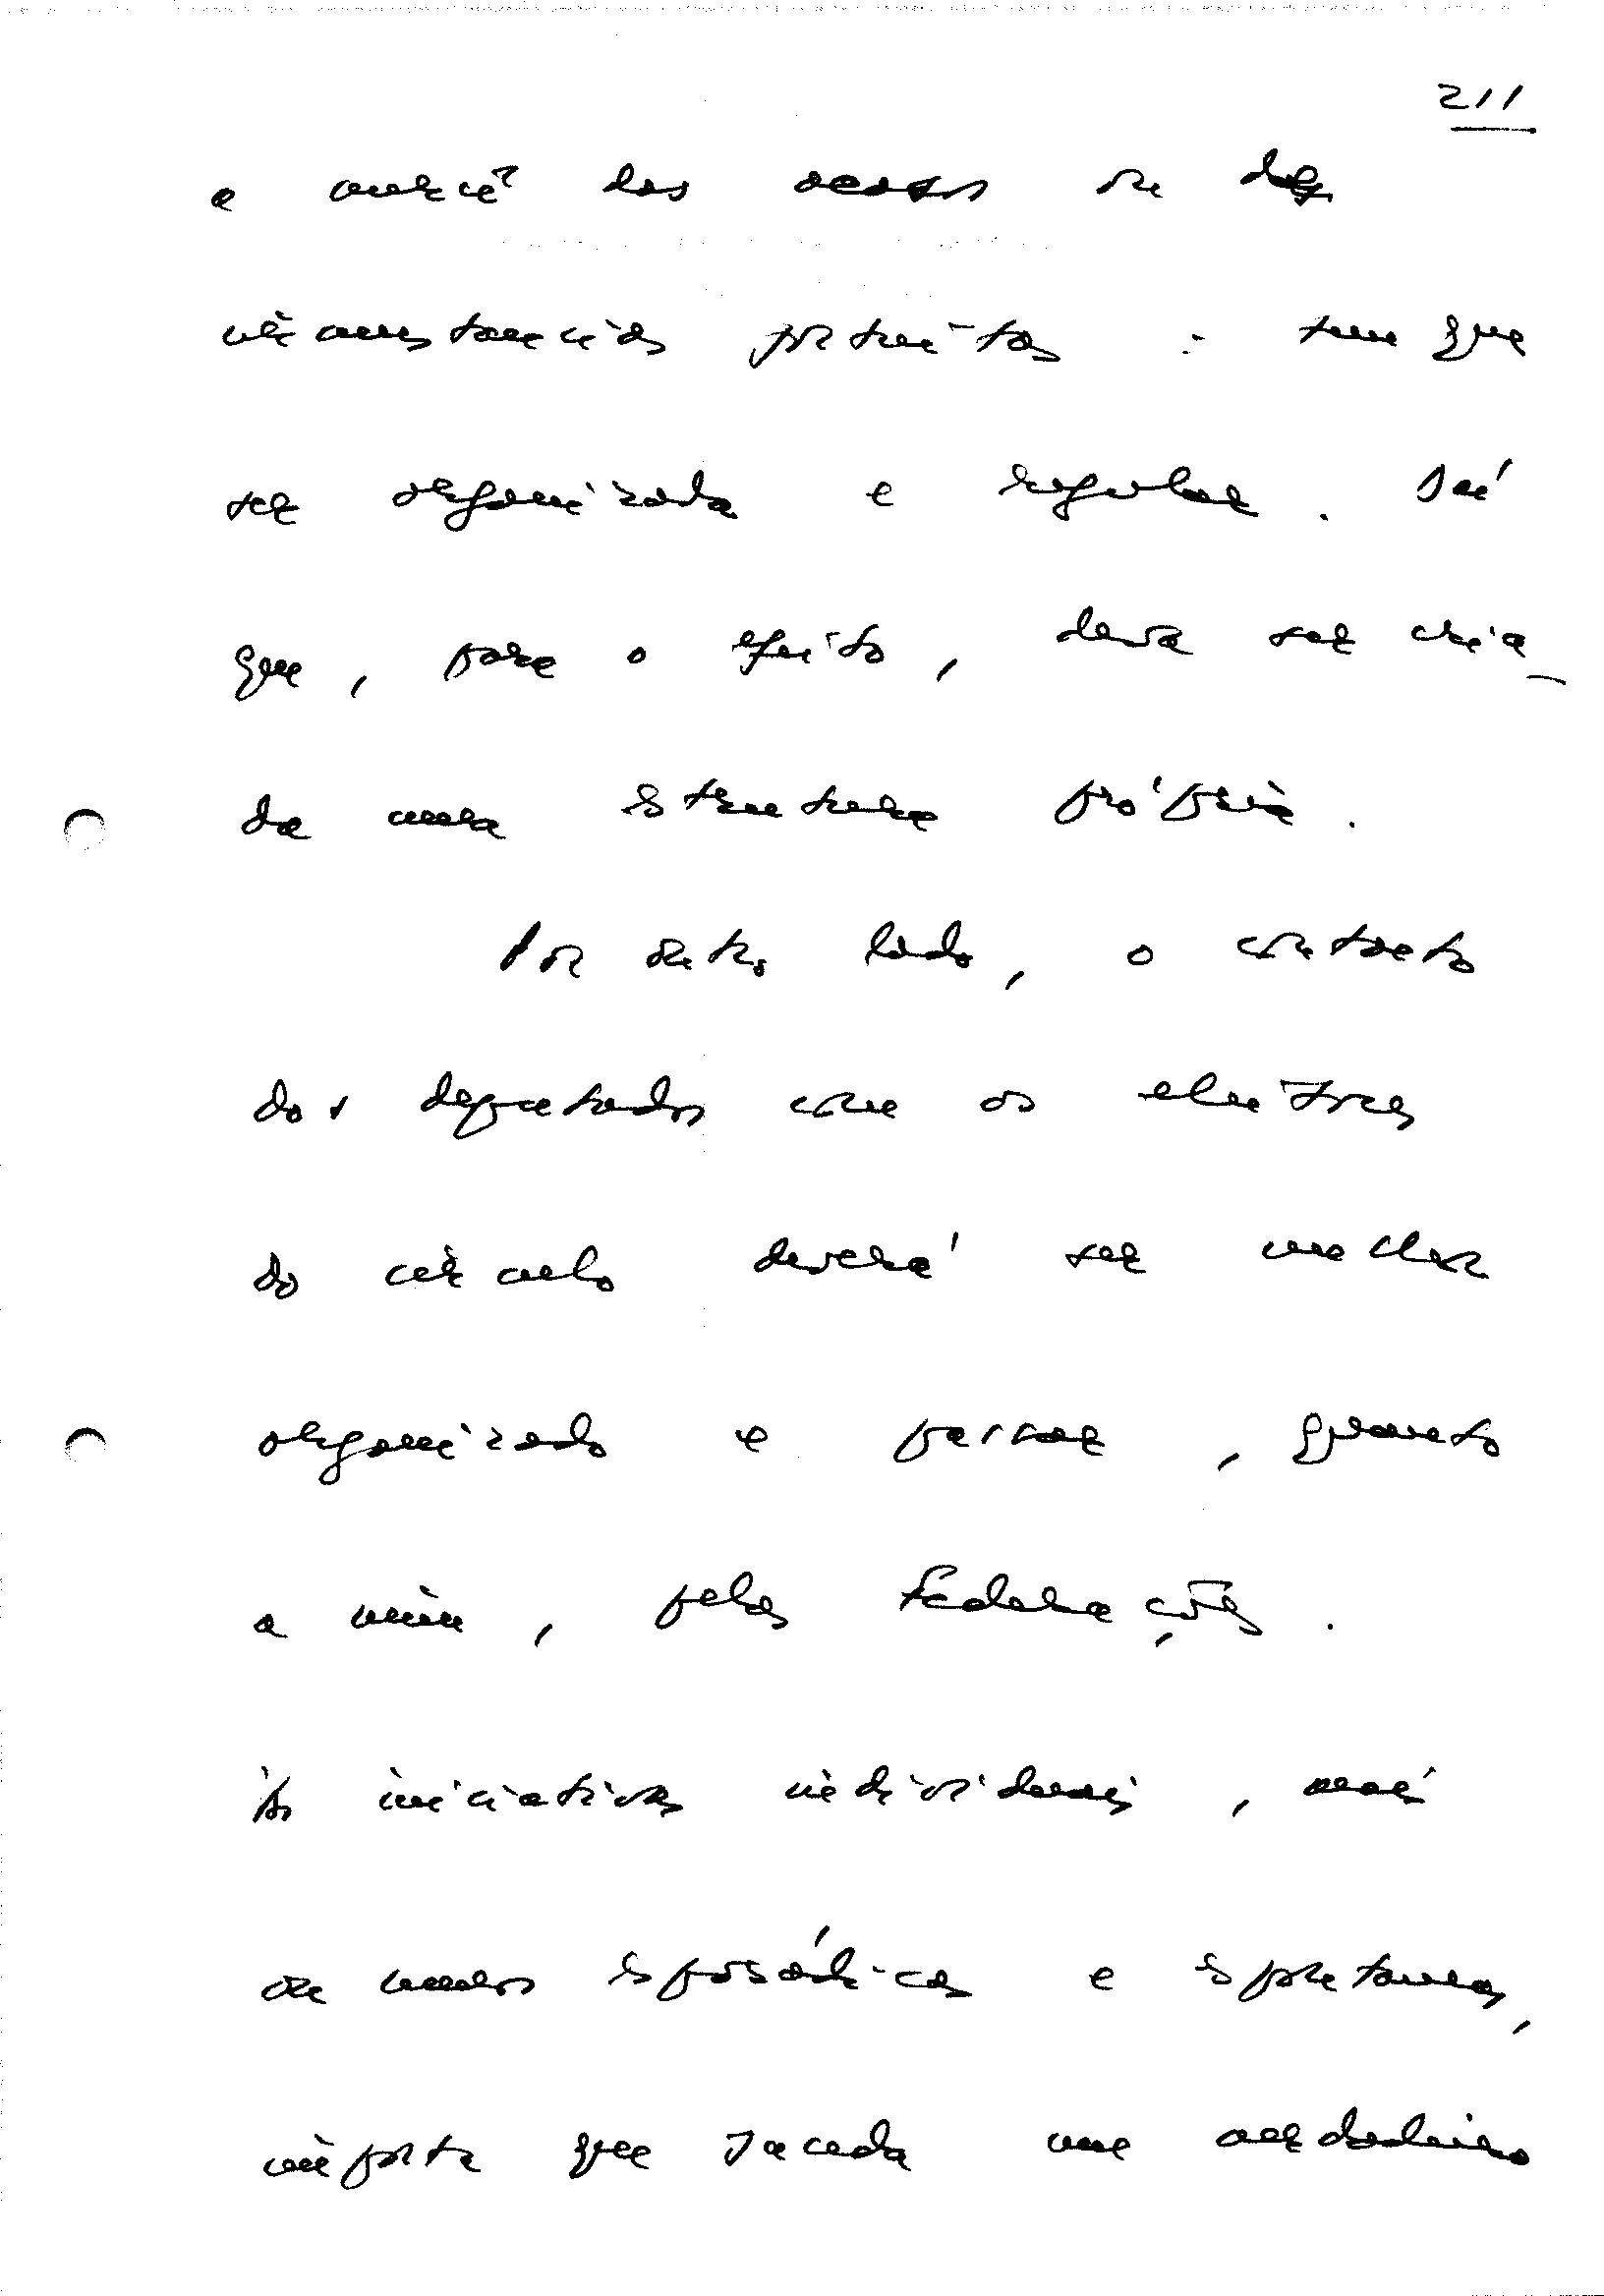 211
à mercê dos acasos ou das
circunstâncias fortuitas: tem que
ser organizada e regular. Daí
que, para o efeito, deva ser cria-
da uma estrutura própria.
Por outro lado, o contacto
dos deputados com os eleitores
do círculo deverá ser melhor
organizado e passar, quanto
a mim, pelas Federações.
Às iniciativas individuais, mais
ou menos esporádicas e espontâneas,
importa que suceda um verdadeiro